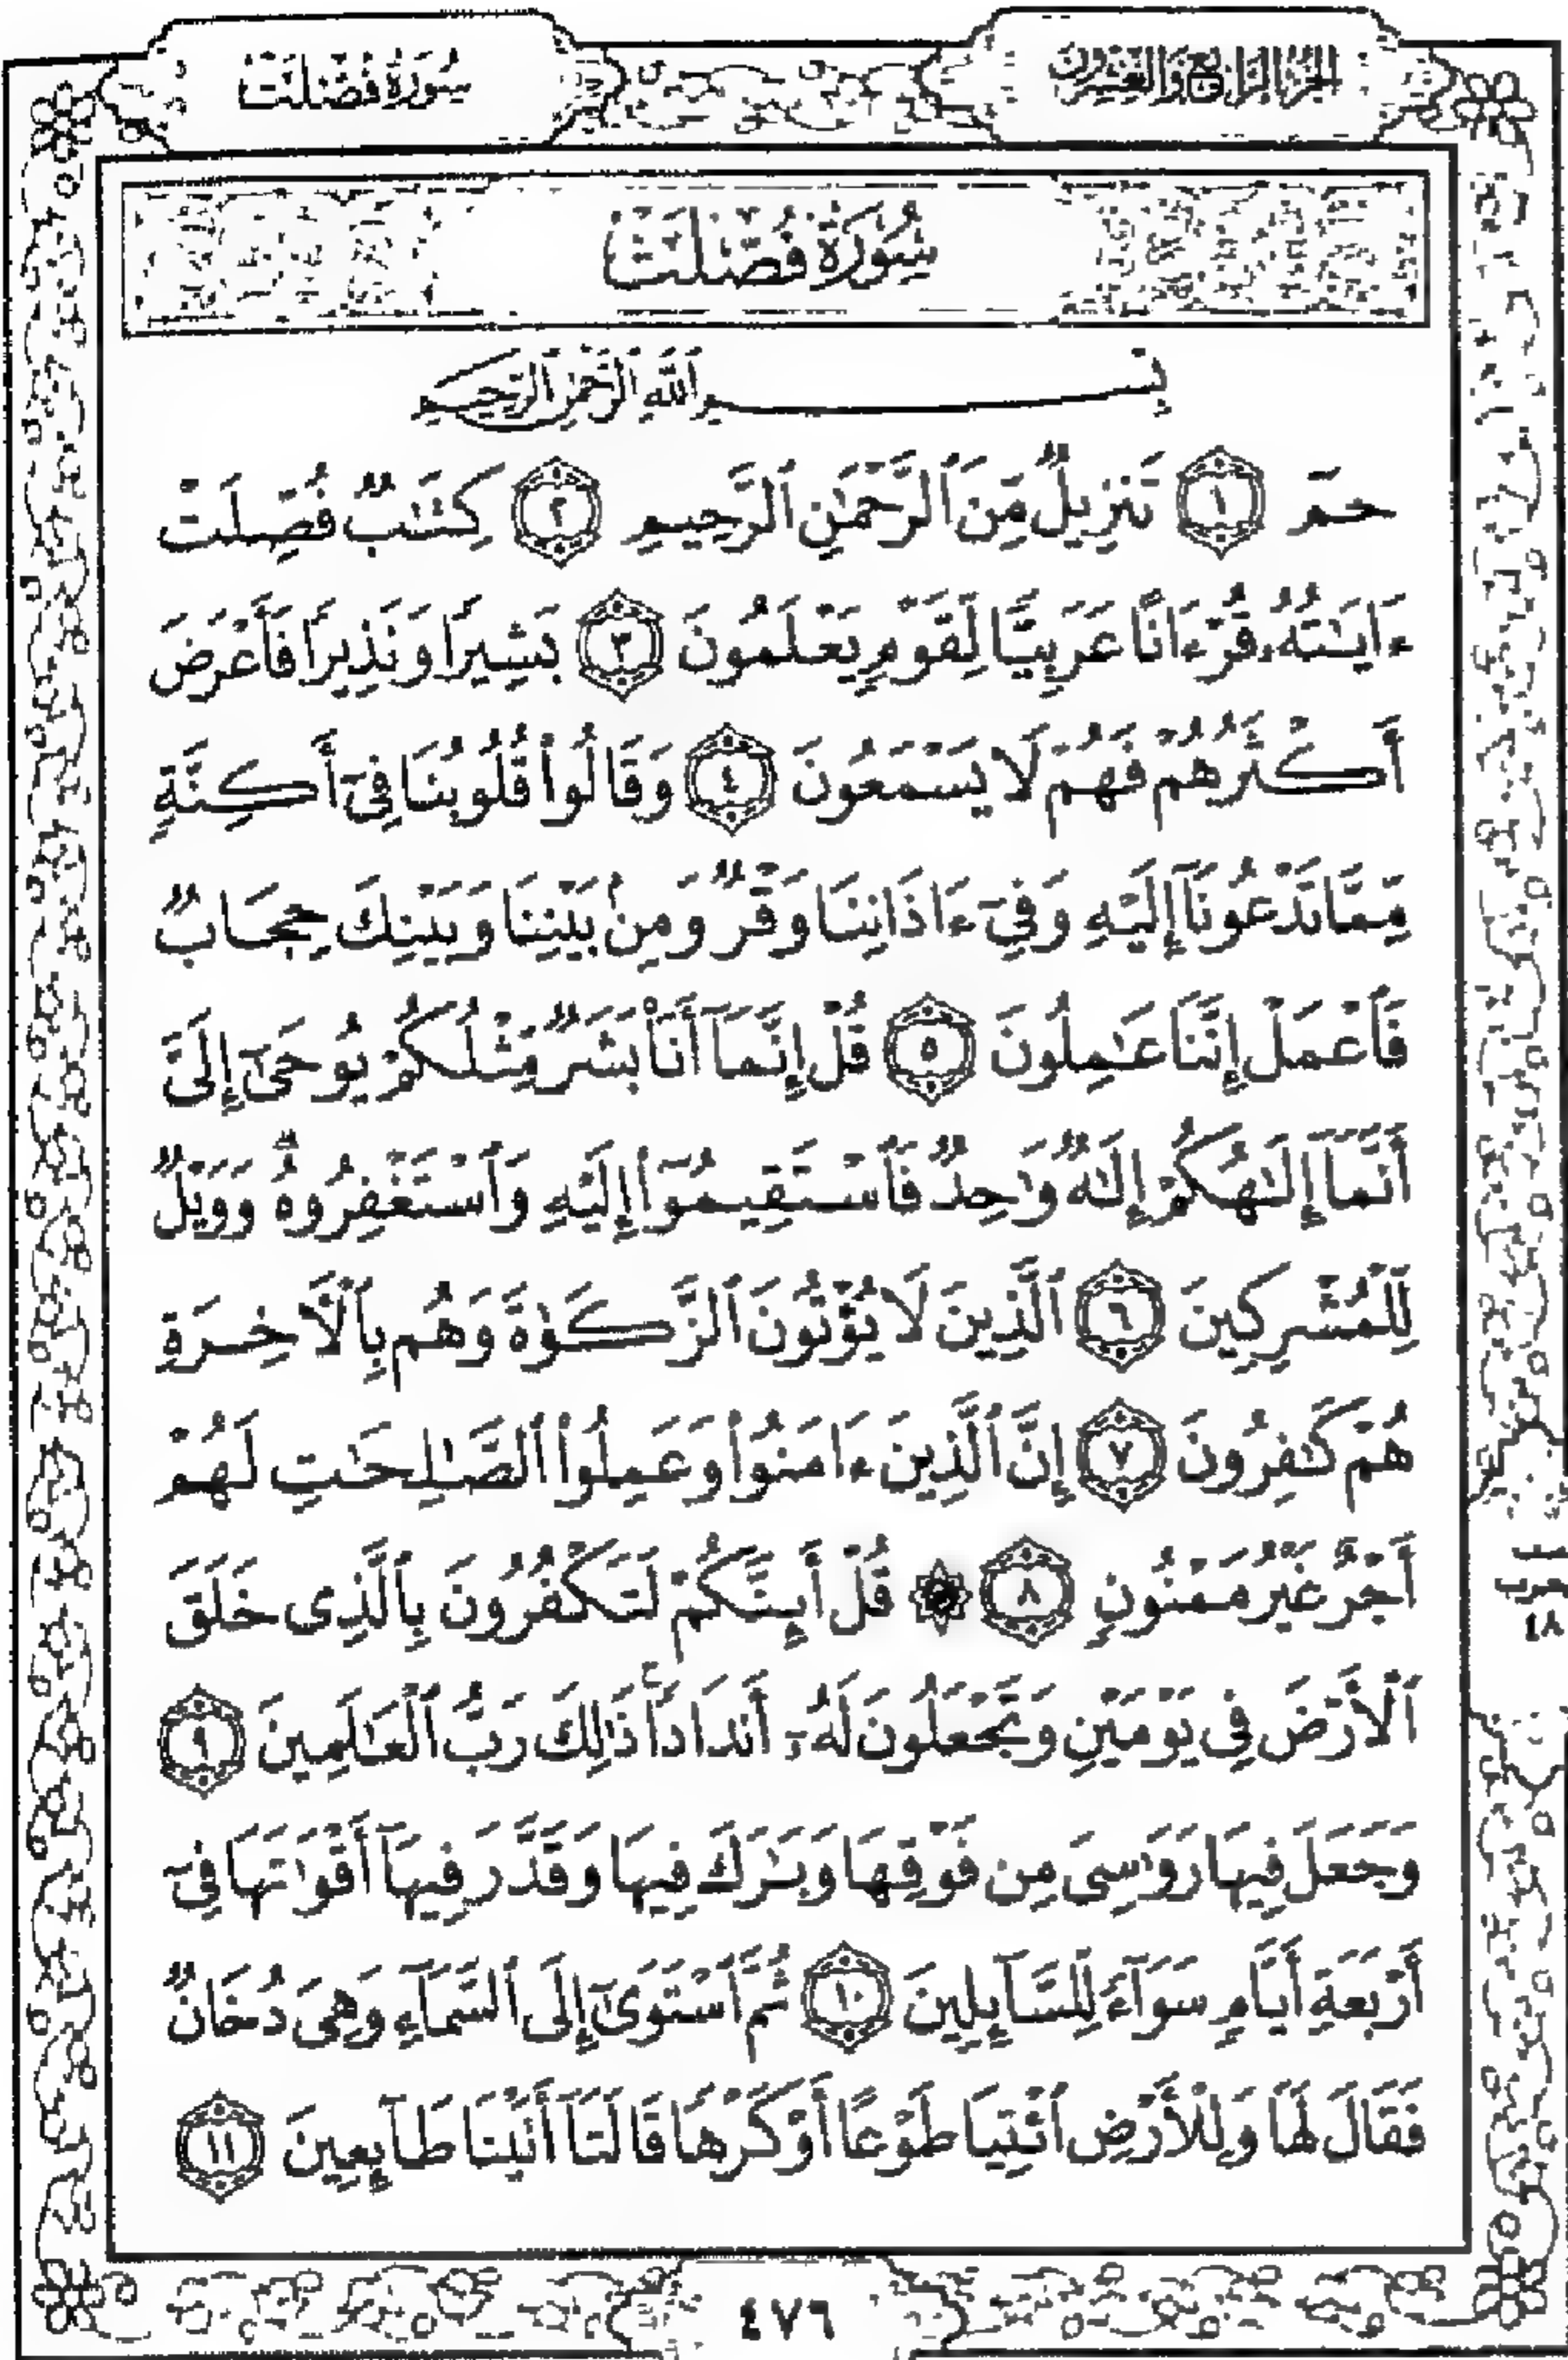 الجزء الرابع والعشرون
سورة فصلت
سُورَةُ فُصِّلَتْ
بِسْمِ ٱللَّهِ ٱلرَّحْمَٰنِ ٱلرَّحِيمِ
حمٓ ١ تَنزِيلٌ مِّنَ ٱلرَّحْمَٰنِ ٱلرَّحِيمِ ٢ كِتَٰبٌ فُصِّلَتْ
ءَايَٰتُهُۥ قُرْءَانًا عَرَبِيًّا لِّقَوْمٍ يَعْلَمُونَ ٣ بَشِيرًا وَنَذِيرًا فَأَعْرَضَ
أَكْثَرُهُمْ فَهُمْ لَا يَسْمَعُونَ ٤ وَقَالُوا۟ قُلُوبُنَا فِىٓ أَكِنَّةٍ
مِّمَّا تَدْعُونَآ إِلَيْهِ وَفِىٓ ءَاذَانِنَا وَقْرٌ وَمِنۢ بَيْنِنَا وَبَيْنِكَ حِجَابٌ
فَٱعْمَلْ إِنَّنَا عَٰمِلُونَ ٥ قُلْ إِنَّمَآ أَنَا۠ بَشَرٌ مِّثْلُكُمْ يُوحَىٰٓ إِلَىَّ
أَنَّمَآ إِلَٰهُكُمْ إِلَٰهٌ وَٰحِدٌ فَٱسْتَقِيمُوٓا۟ إِلَيْهِ وَٱسْتَغْفِرُوهُ ۗ وَوَيْلٌ
لِّلْمُشْرِكِينَ ٦ ٱلَّذِينَ لَا يُؤْتُونَ ٱلزَّكَوٰةَ وَهُم بِٱلْءَاخِرَةِ
هُمْ كَٰفِرُونَ ٧ إِنَّ ٱلَّذِينَ ءَامَنُوا۟ وَعَمِلُوا۟ ٱلصَّٰلِحَٰتِ لَهُمْ
أَجْرٌ غَيْرُ مَمْنُونٍ ٨ ۞ قُلْ أَئِنَّكُمْ لَتَكْفُرُونَ بِٱلَّذِى خَلَقَ
ٱلْأَرْضَ فِى يَوْمَيْنِ وَتَجْعَلُونَ لَهُۥٓ أَندَادًا ۚ ذَٰلِكَ رَبُّ ٱلْعَٰلَمِينَ ٩
وَجَعَلَ فِيهَا رَوَٰسِىَ مِن فَوْقِهَا وَبَٰرَكَ فِيهَا وَقَدَّرَ فِيهَآ أَقْوَٰتَهَا فِىٓ
أَرْبَعَةِ أَيَّامٍ سَوَآءً لِّلسَّآئِلِينَ ١٠ ثُمَّ ٱسْتَوَىٰٓ إِلَى ٱلسَّمَآءِ وَهِىَ دُخَانٌ
فَقَالَ لَهَا وَلِلْأَرْضِ ٱئْتِيَا طَوْعًا أَوْ كَرْهًا قَالَتَآ أَتَيْنَا طَآئِعِينَ ١١
٤٧٦